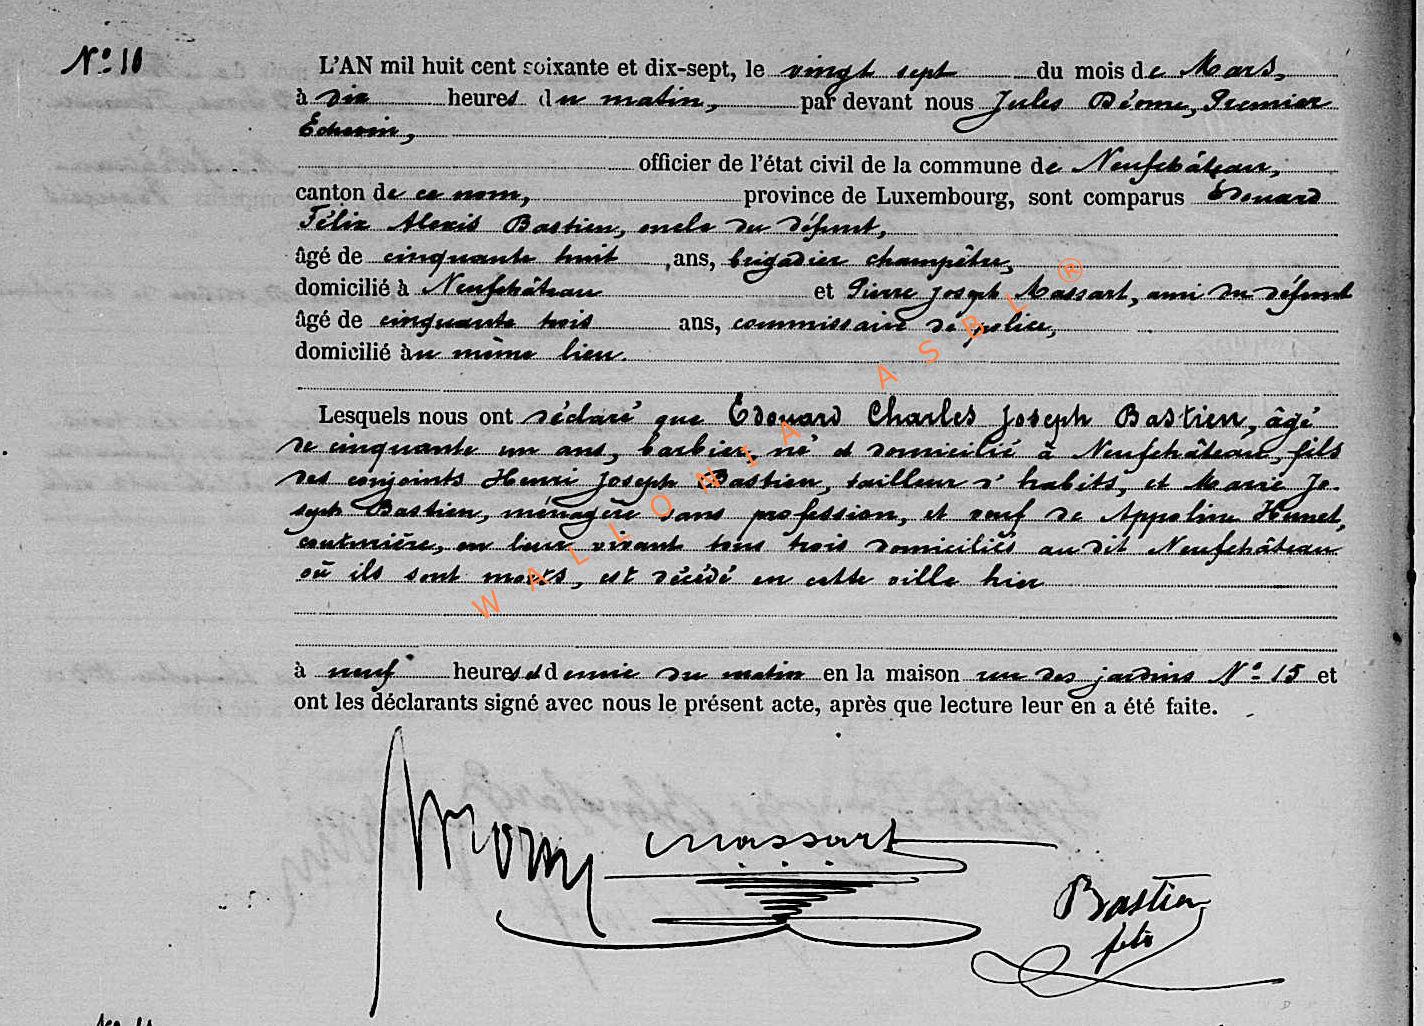 N° 10
L'AN mil huit cent soixante et dix-sept, le vingt sept du mois de Mars,
à dix heures du matin, par devant nous Jules Déome, Premier
Echevin,
officier de l'état civil de la commune de Neufchâteau,
canton de ce nom, province de Luxembourg, sont comparus Edouard
Félix Alexis Bastien, oncle du défunt,
âgé de cinquante huit ans, brigadier champêtre,
domicilié à Neufchâteau et Pierre Joseph Massart, ami du défunt
âgé de cinquante trois ans, commissaire de police,
domicilié au même lieu.
Lesquels nous ont déclaré que Edouard Charles Joseph Bastien, âgé
de cinquante un ans, barbier, né et domicilié à Neufchâteau, fils
des conjoints Henri Joseph Bastien, tailleur d'habits, et Marie Jo-
seph Bastien, ménagère sans profession, et veuf de Appoline Hunet,
couturière, en leur vivant tous trois domiciliés au dit Neufchâteau
où ils sont morts, est décédé en cette ville hier
à neuf heures et demie du matin en la maison rue des jardins N° 15 et
ont les déclarants signé avec nous le présent acte, après que lecture leur en a été faite.
Massart
Bastien
WALLONIA ASBL ®